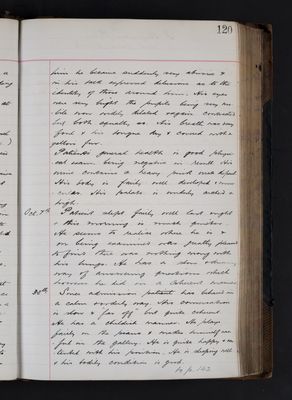 120
him he became suddenly very abusive &
in his talk expressed delusions as to the
identity of those around him. His eyes
were very bright the pupils being very mo-
bile now widely dilated & again contracted
but both equally so. His breath was very
foul & his tongue dry & covered with a
yellow fur.
Patient's general health is good physi-
cal exam. being negative in result. His
urine contains a heavy pink urate deposit
His body is fairly well developed &
His palate is unduly arched &
high.
Oct. 7th Patient slept fairly well last night
& this morning is much quieter.
He seems to realise where he is &
on being examined was greatly pleased
to find there was nothing wrong with
his lungs. He has a slow &
way of answering questions which
however he did in a coherent manner
30th Since admission patient has behaved in
a calm orderly way. His conversation
is slow & far off but quite coherent.
He has a childish manner. He plays
fairly on the piano & makes himself use-
ful in the gallery. He is quite happy & con-
tented with his position. He is sleeping well
& his bodily condition is good.